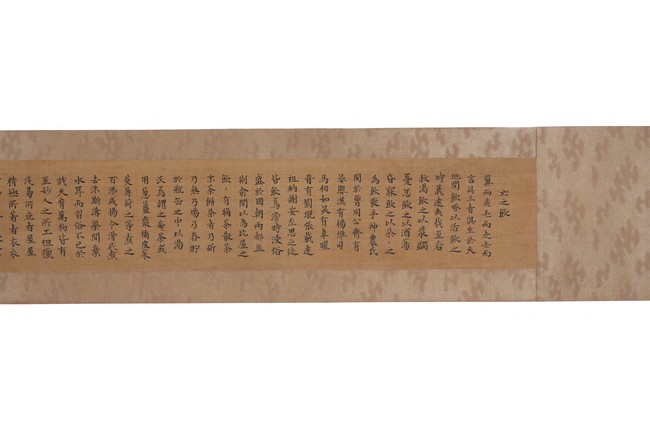 六之飲
翼而飛毛而走去而
言此三者俱生於天
地間飲啄以活飲之
時義遠矣哉至若
救渴飲之以漿蠲
憂忿飲之以酒蕩
昏寐飲之以茶〻之
為飲發乎神農氏
聞於魯周公齊有
晏嬰漢有楊雄司
馬相如吳有韋曜
晉有劉琨張載遠
祖納謝安左思之徒
皆飲焉滂時浸俗
盛於國朝兩都並
荊俞間以為比屋之
飲〻有桷茶散茶
末茶餅茶者乃斫
乃熬乃煬乃舂貯
於瓶缶之中以湯
沃焉謂之痷茶或
用葱薑棗橘皮茱
萸薄荷之等煮之
百沸或揚令滑或煮
去沫斯溝渠間棄
水耳而習俗不已於
戲天育萬物皆有
至妙人之所工但獵
淺易所庇者屋屋
精極所著者衣衣